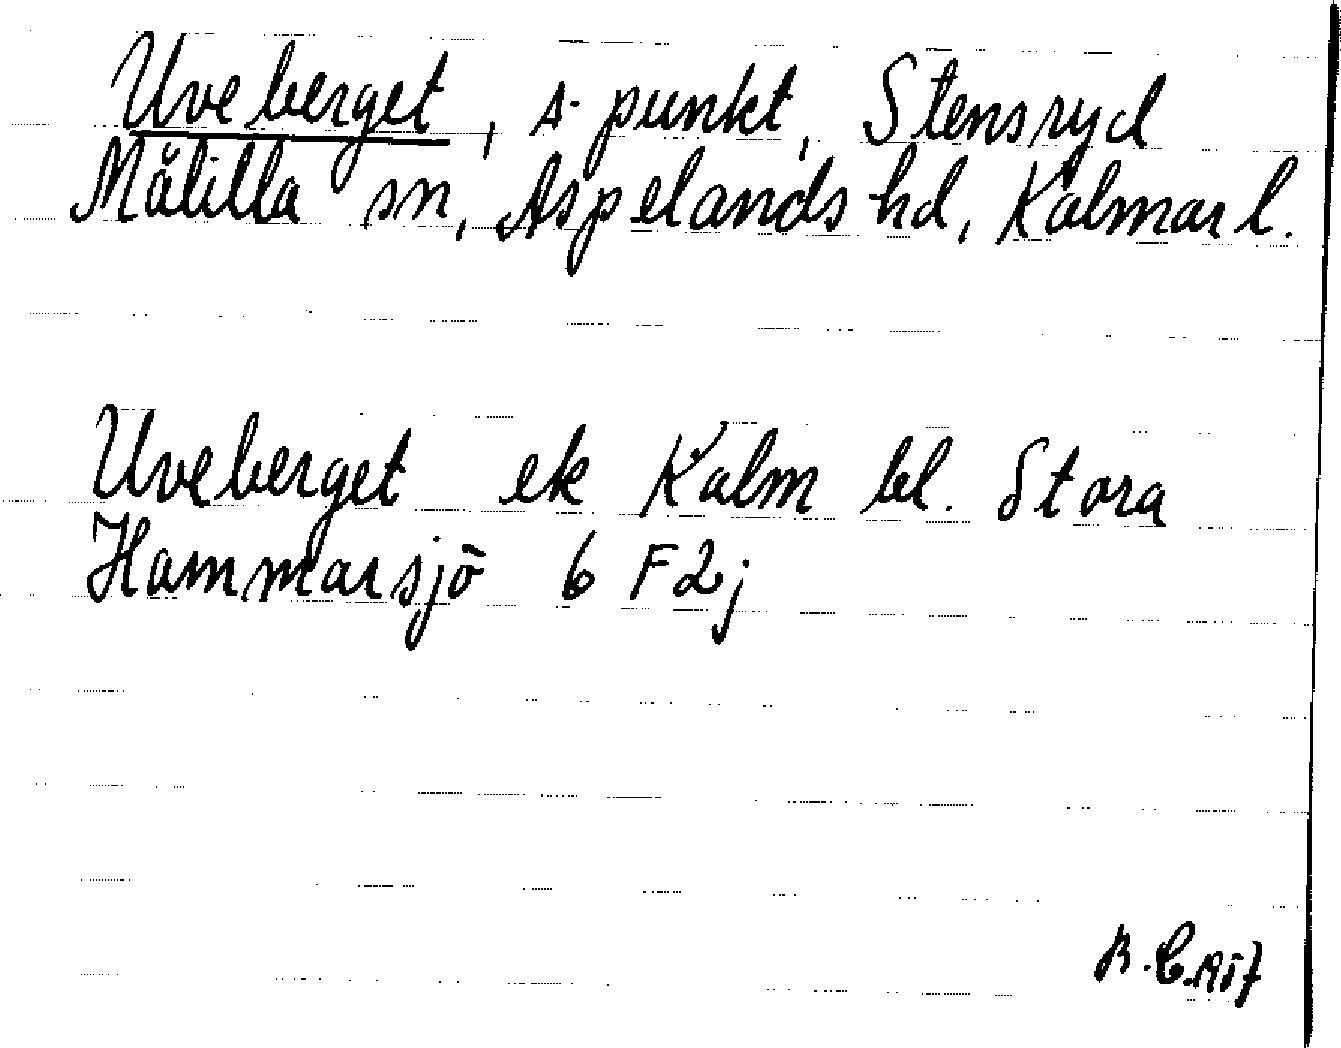 Uveberget, △-punkt, Stensryd
Målilla sn, Aspelands hd, Kalmar l.
Uveberget ek Kalm bl. Stora
Hammarsjö 6 F 2j